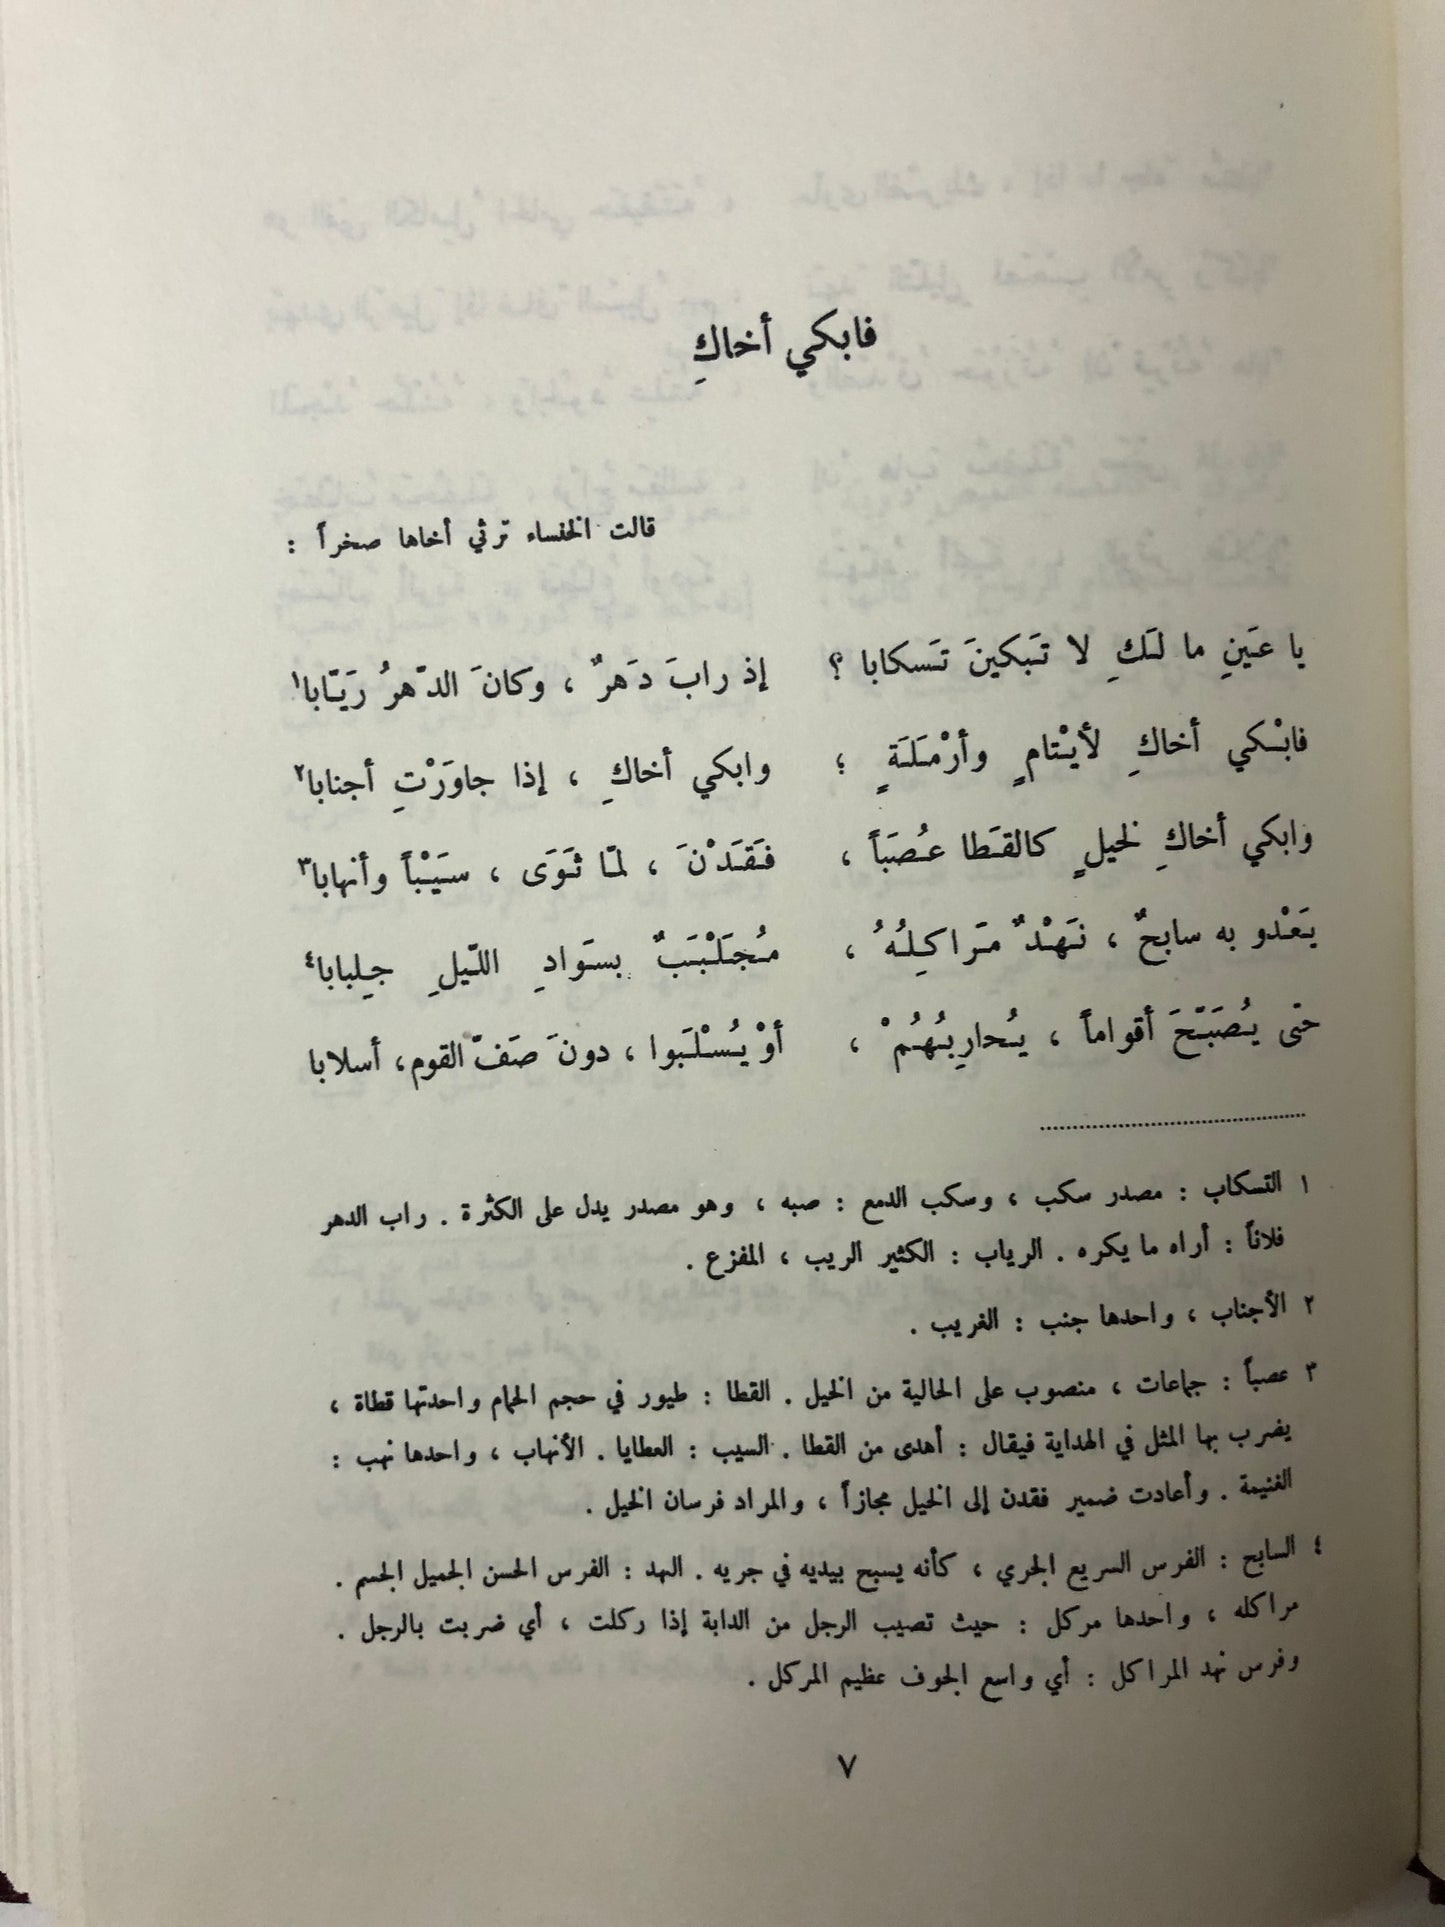 فابكي أخاكِ
قالت الخنساء ترثي أخاها صخراً :
يا عَينِ ما لَكِ لا تَبكينَ تَسكابا ؟ إذ رابَ دَهرٌ ، وكانَ الدّهرُ رَيّابا١
فابْكي أخاكِ لأيْتامٍ وأرْمَلَةٍ ؛ وابكي أخاكِ ، إذا جاوَرْتِ أجنابا٢
وابكي أخاكِ لخيلٍ كالقَطا عُصَباً ، فَقَدْنَ ، لمّا ثَوَى ، سَيْباً وأنهابا٣
يَعْدو به سابحٌ ، نَهْدٌ مَراكِلُهُ ، مُجَلْبَبٌ بسَوادِ اللّيلِ جِلبابا٤
حتى يُصَبّحَ أقواماً ، يُحارِبُهُمْ ، أوْ يُسْلَبوا ، دونَ صَفّ القوم، أسلابا
١ التسكاب : مصدر سكب ، وسكب الدمع : صبه ، وهو مصدر يدل على الكثرة . راب الدهر
فلاناً : أراه ما يكره . الرياب : الكثير الريب ، المفزع .
٢ الأجناب ، واحدها جنب : الغريب .
٣ عصباً : جماعات ، منصوب على الحالية من الخيل . القطا : طيور في حجم الحمام واحدتها قطاة ،
يضرب بها المثل في الهداية فيقال : أهدى من القطا . السيب : العطايا . الأنهاب ، واحدها نهب :
الغنيمة . وأعادت ضمير فقدن إلى الخيل مجازاً ، والمراد فرسان الخيل .
٤ السابح : الفرس السريع الجري ، كأنه يسبح بيديه في جريه . النهد : الفرس الحسن الجميل الجسم .
مراكله ، واحدها مركل : حيث تصيب الرجل من الدابة إذا ركلت ، أي ضربت بالرجل .
وفرس نهد المراكل : أي واسع الجوف عظيم المركل .
٧